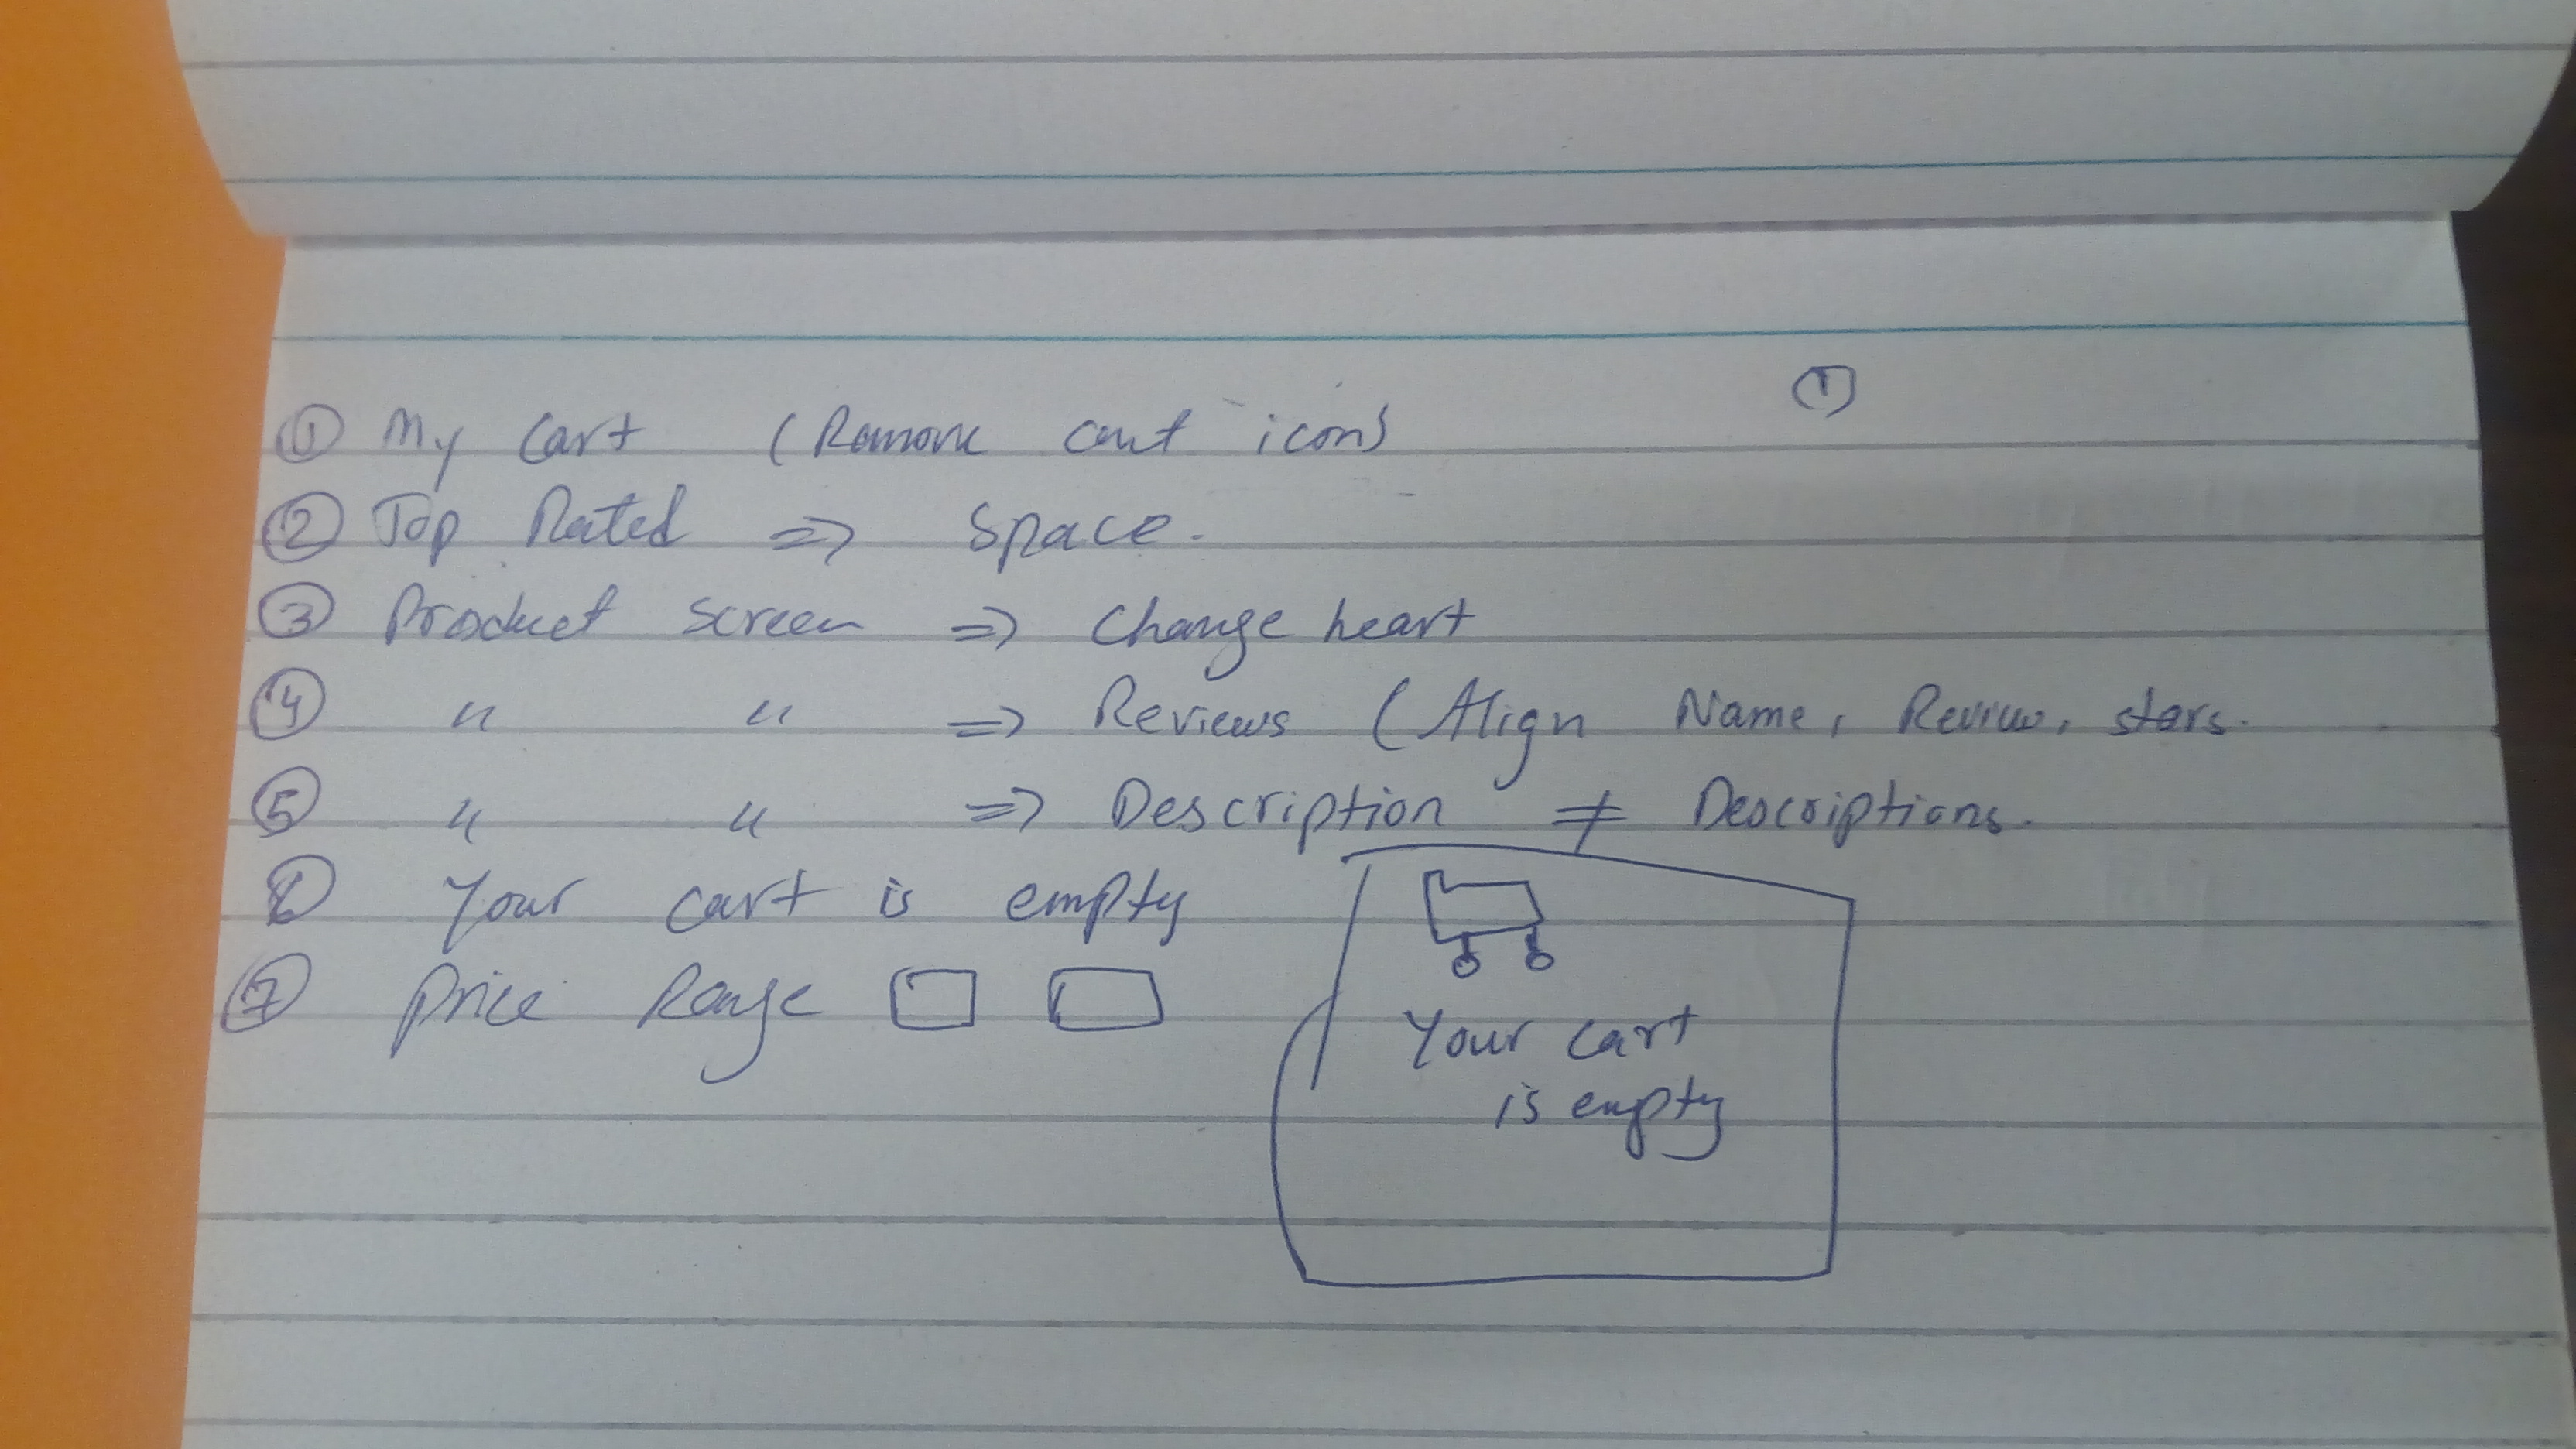 ①
① My Cart (Remove cart icon)
② Top Rated => Space.
③ Product Screen => Change heart
④ " " => Reviews (Align Name, Review, stars.
⑤ " " => Description ≠ Descriptions.
⑥ Your cart is empty
⑦ Price Range
Your cart
is empty